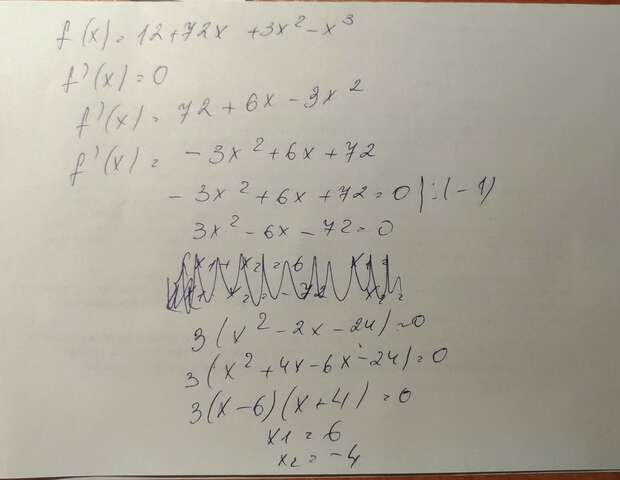 f(x) = 12 + 72x + 3x² - x³
f'(x) = 0
f'(x) = 72 + 6x - 3x²
f'(x) = - 3x² + 6x + 72
- 3x² + 6x + 72 = 0 | : (-1)
3x² - 6x - 72 = 0
3(x² - 2x - 24) = 0
3(x² + 4x - 6x - 24) = 0
3(x - 6)(x + 4) = 0
x1 = 6
x2 = -4